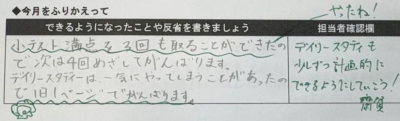 ◆今月をふりかえって
できるようになったことや反省を書きましょう
担当者確認欄
小テスト満点を3回も取ることができたの
で次は4回めざしてがんばります。
デイリースタディーは、一気にやってしまうことがあったの
で「1日1ページ」でがんばります。
やったね!
デイリースタディも
少しずつ計画的に
できるようにしていこう!
齋賀